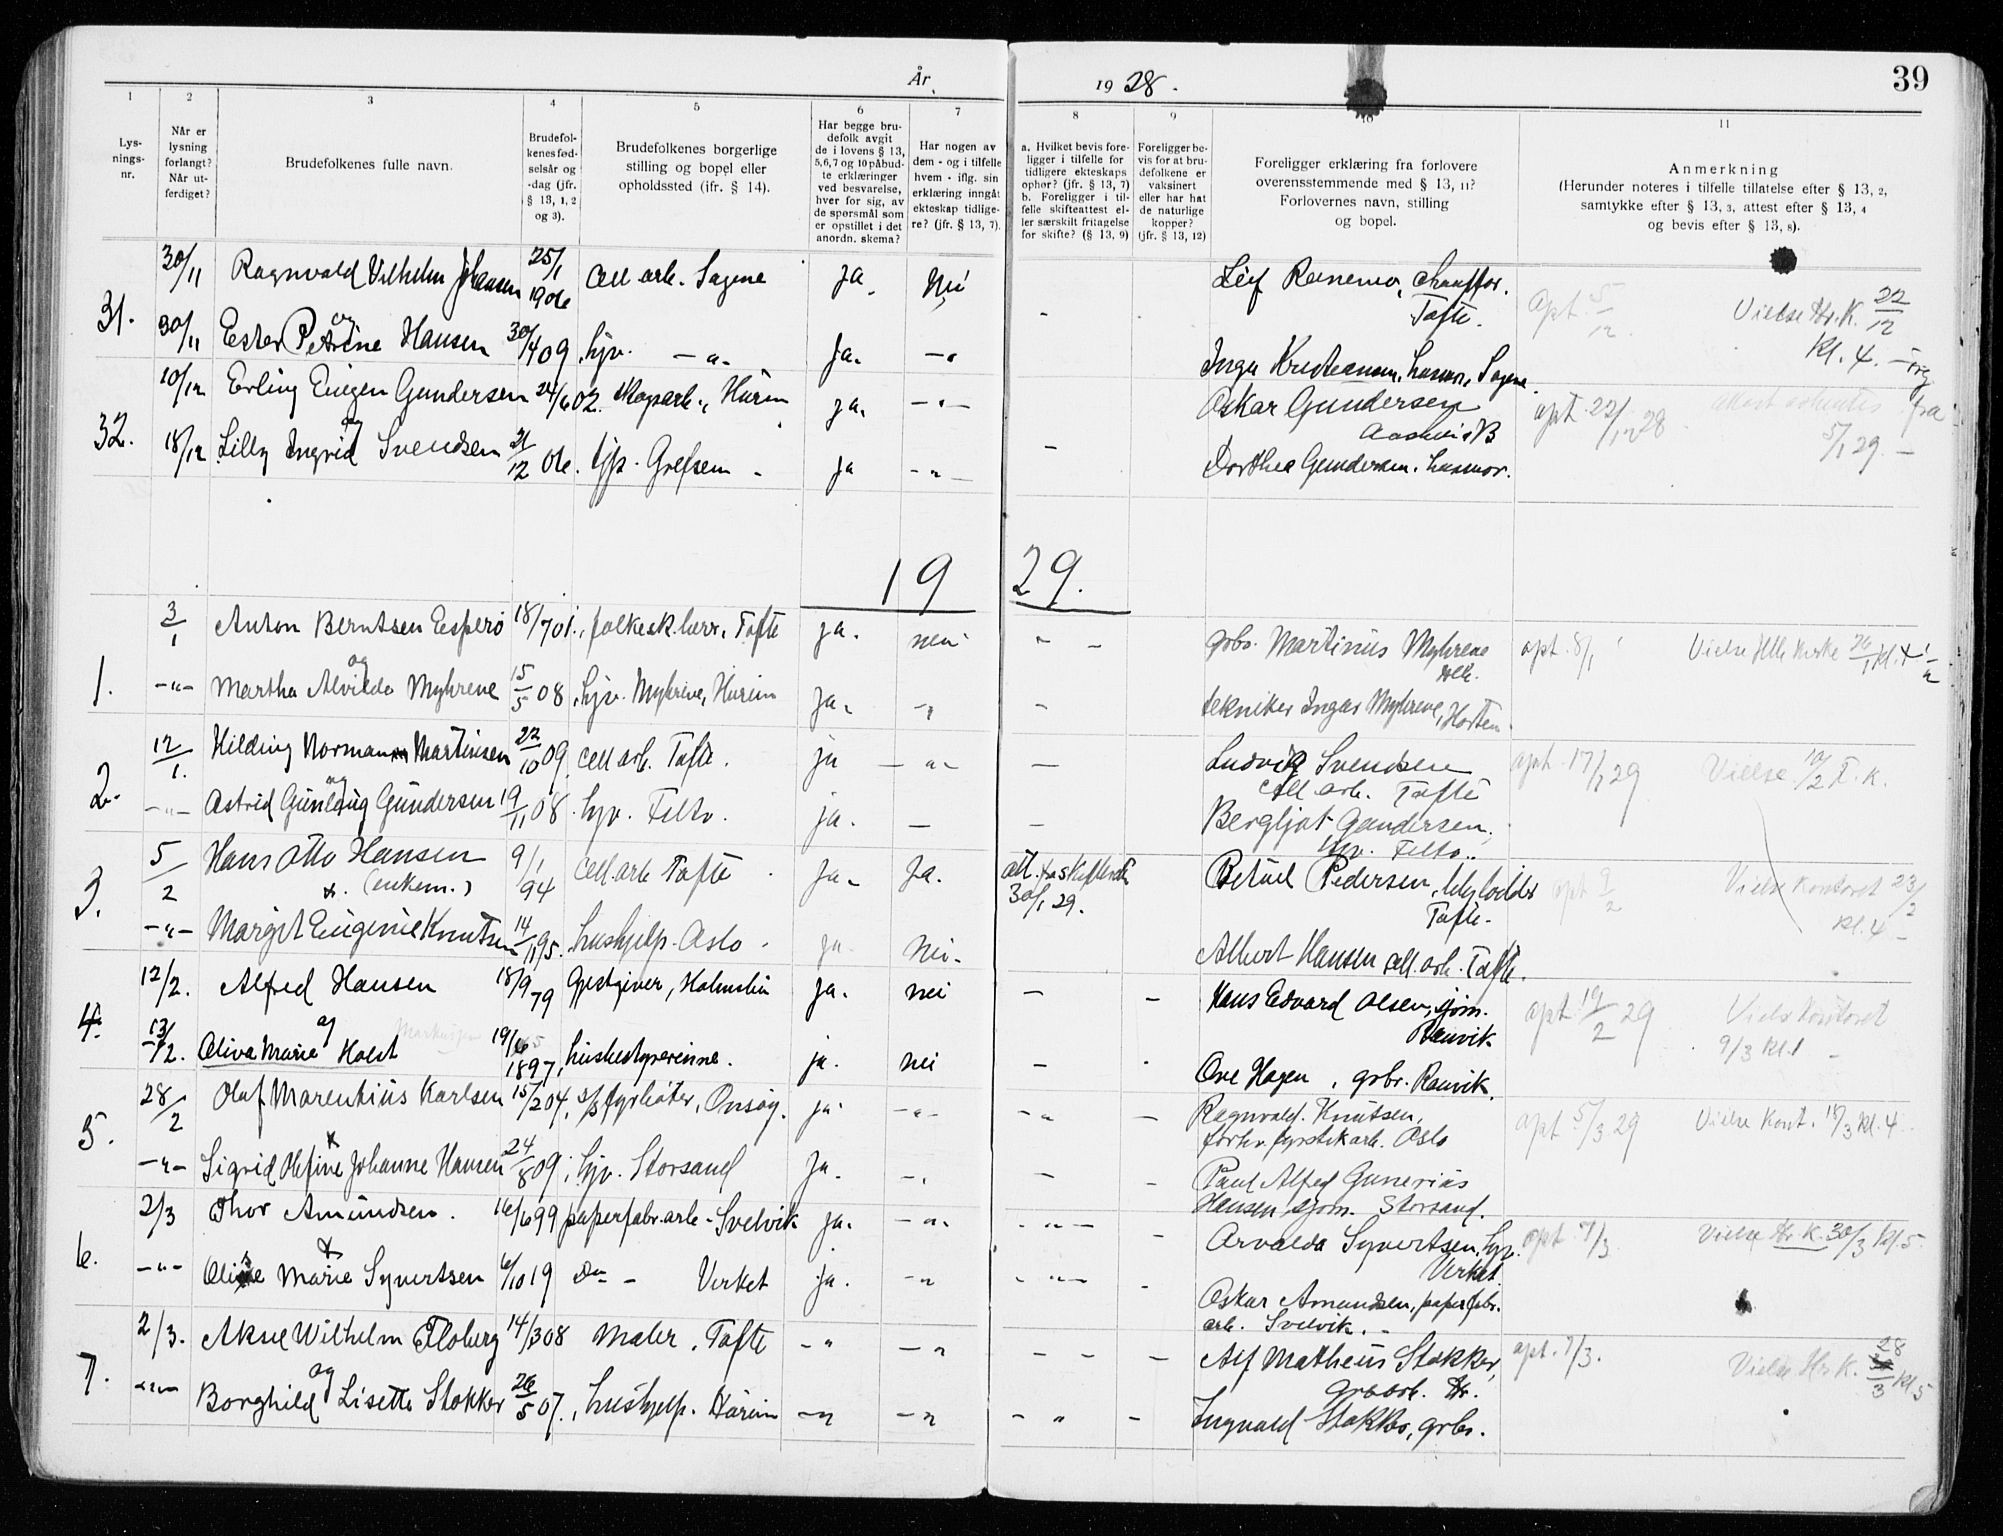 År 1928.
39
1 2 3 4 5 6 7 8 9 10 11
Lys-
nings-
nr.
Når er
lysning
forlangt?
Når ut-
ferdiget?
Brudefolkenes fulle navn.
Brudefol-
kenes fød-
selsår og
-dag (jfr.
§ 13, 1, 2
og 3).
Brudefolkenes borgerlige
stilling og bopel eller
opholdssted (ifr. § 14).
Har begge bru-
defolk avgit
de i lovens § 13,
5,6,7 og 10 påbud-
te erklæringer
ved besvarelse,
hver for sig, av
de spørsmål som
er opstillet i det
anordn. skema?
Har nogen av
dem - og i tilfelle
hvem - iflg. sin
erklæring inngåt
ekteskap tidlige-
re? (jfr. § 13, 7).
a. Hvilket bevis fore-
ligger i tilfelle for
tidligere ekteskaps
ophør? (jfr. § 13, 7)
b. Foreligger i til-
felle skifteattest el-
ler særskilt fritagelse
for skifte? (§ 13, 9)
Foreligger be-
vis for at bru-
defolkene er
vaksinert
eller har hat
de naturlige
kopper?
(jfr. § 13, 12)
Foreligger erklæring fra forlovere
overensstemmende med § 13, 11?
Forlovernes navn, stilling
og bopel.
Anmerkning
(Herunder noteres i tilfelle tillatelse efter § 13, 2,
samtykke efter § 13, 3, attest efter § 13, 4
og bevis efter § 13, 8).
31. 30/11 Ragnvald Vilhelm Johansen 25/1 1906 Cell arb. Sagene ja. Nei - Leif Ranemo, chauffør. Tofte. opt. 5/12. Vielse Hr. K. 22/12 Kl. 4.
og
30/11 Ester Petrine Hansen 30/4 09 hjv. -"- Ja. -" Inga Kristiansen, husmor, Sagene.
32. 10/12 Erling Eugen Gundersen 24/6 02. skogarb., Hurum ja. -"- Oskar Gundersen opt. 22/12 28
og
18/12 Lilly Ingrid Svendsen 21/12 06. hjp. Grefsen - ja -"- - Dorthea Gundersen, husmor. 5/1 29. -
1929.
1. 3/1 Anton Berntsen Esperø 18/7 01., folkesk.lærer, Tofte ja. nei " - grbr. Martinus Myhrene opt. 8/1 Vielse Hle Kirke 26/1 kl. 4 1/2
og
-"- Martha Alvilde Myhrene 15/5 08, hjv. Myhrene, Hurum ja. -" - tekniker Ingar Myhrene, Horten.
2. 12/1. Hilding Norman Martinsen 22/10 09. Cell arb. Tofte. ja -"- - Ludvig Svendsen opt. 17/1 29 Vielse 10/2 T. K.
og
Cell arb. Tofte
-"- Astrid Gunlaug Gundersen 19/11 08. hjv. Felto. ja. - - Bergljot Gundersen,
hjv. Felto.
3. 5/2 Hans Otto Hansen 9/1 94 Cell arb Tofte. ja. Ja. 30/1 29. Betuel Pedersen, Tofte. opt 9/2 Vielse Kontoret 23/2 Kl. 4 -
(enkem.)
-"- Margit Eugenie Knutsen 14/11 95. hushjelp. Oslo. ja. Nei. Albert Hansen cell. arb. Tofte.
4. 12/2. Alfred Hansen 18/9 79 Gjestgiver, Holmsbu ja. nei - - Hans Edvard Olsen, sjøm. Ramvik opt. 19/2 29 Vielse Kontoret
og
9/3 kl. 1 -
13/2. Oliva Marie Holst 19/6 1897, husbestyrerinne. ja. nei - - Ove Hagen, grbr. Ramvik.
5. 28/2 Olaf Marentius Karlsen 15/2 04, s/s fyrbøter, Onsøy. ja. -"- -" - Ragnvald Knutsen, opt 5/3 29 Vielse Kont. 18/3 Kl. 4
forhv. fyrstikarb. Oslo
-"- Sigrid Olefine Johanne Hansen 24/8 09, hjv. Storsand ja. -" - - Paul Alfred Gunerius
Hansen sjøm. Storsand.
6. 2/3 Thor Amundsen. 16/6 99 paperfabr.arb - Svelvik ja. -"- -"- - Arvalda Syvertsen, hjp. Verket. opt. 7/3 Vielse Hr. K. 30/3 Kl. 5
-"- Marie Syvertsen 6/10 19 Do - Verket ja. -" -"- - Oskar Amundsen, paperfabr.
arb. Svelvik. -
7. 2/3. Aksel Wilhelm Floberg 14/3 08 Maler, Tofte -" -" - - - Alf Matheus Stokker, opt. 7/3. Vielse Hr. K. 28/3 Kl 5
og
-"- Borghild Lisette Stokker 26/5 07., hushjelp. Hurum -" -" - " - Ingvald Stokker, grbr.